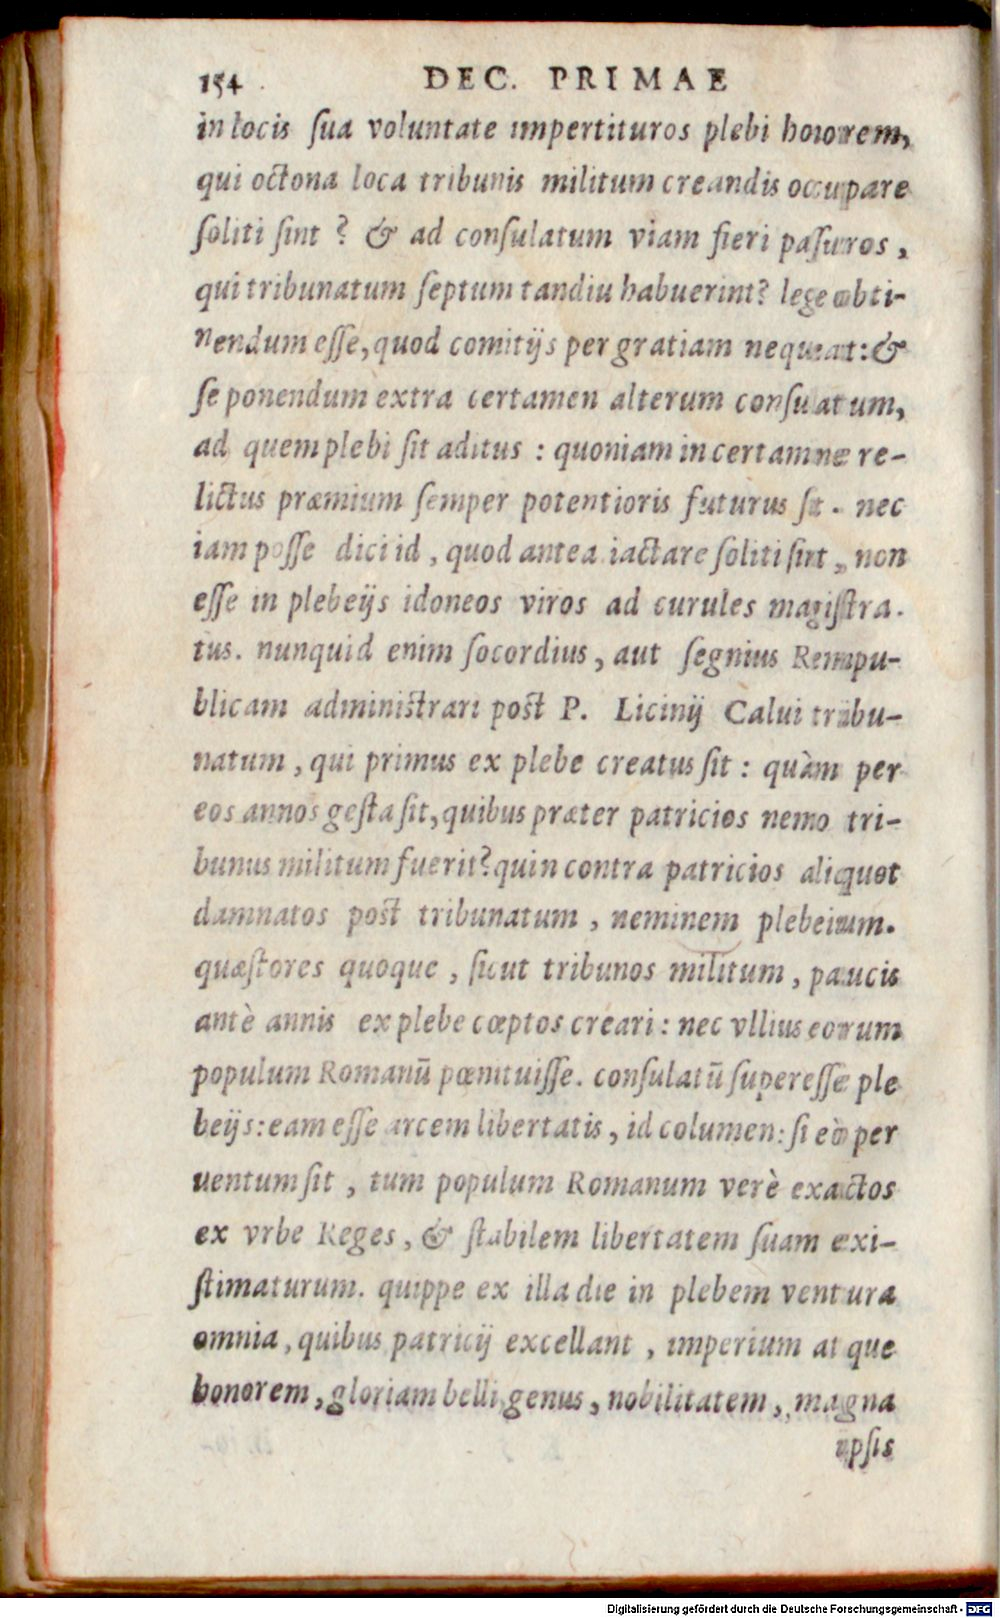 154 DEC. PRIMAE
in locis sua voluntate impertituros plebi honorem,
qui octona loca tribunis militum creandis occupare
soliti sint ? & ad consulatum viam fieri passuros ,
qui tribunatum septum tandiu habuerint? lege obti-
nendum esse, quod comitijs per gratiam nequeat: &
se ponendum extra certamen alterum consulatum,
ad quem plebi sit aditus : quoniam in certamine re-
lictus præmium semper potentioris futurus sit . nec
iam posse dici id , quod antea iactare soliti sint , non
esse in plebeijs idoneos viros ad curules magistra-
tus. nunquid enim socordius , aut segnius Rempu-
blicam administrari post P. Licinij Calui tribu-
natum , qui primus ex plebe creatus sit : quàm per
eos annos gesta sit, quibus præter patricios nemo tri-
bunus militum fuerit? quin contra patricios aliquot
damnatos post tribunatum , neminem plebeium.
quæstores quoque , sicut tribunos militum , paucis
antè annis ex plebe cœptos creari : nec vllius eorum
populum Romanū pœnituisse. consulatū superesse ple
beijs: eam esse arcem libertatis , id columen: si eò per
uentum sit , tum populum Romanum verè exactos
ex vrbe Reges , & stabilem libertatem suam exi-
stimaturum. quippe ex illa die in plebem ventura
omnia , quibus patricij excellant , imperium atque
honorem , gloriam belli, genus , nobilitatem , magna
ipsis
Digitalisierung gefördert durch die Deutsche Forschungsgemeinschaft - DFG